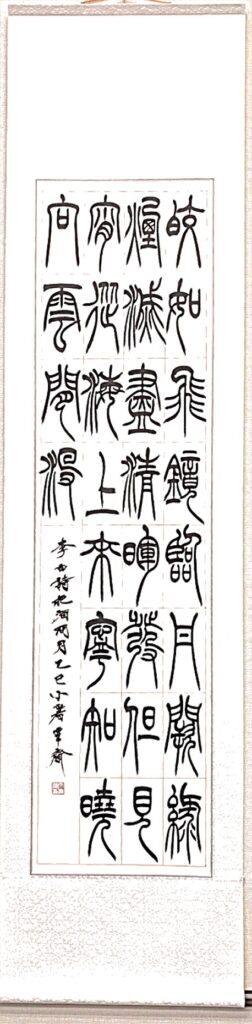 皎如飛鏡臨丹闕綠
煙滅盡清暉發但見
宵從海上來寧知曉
向雲間沒
李白詩把酒問月乙巳小暑